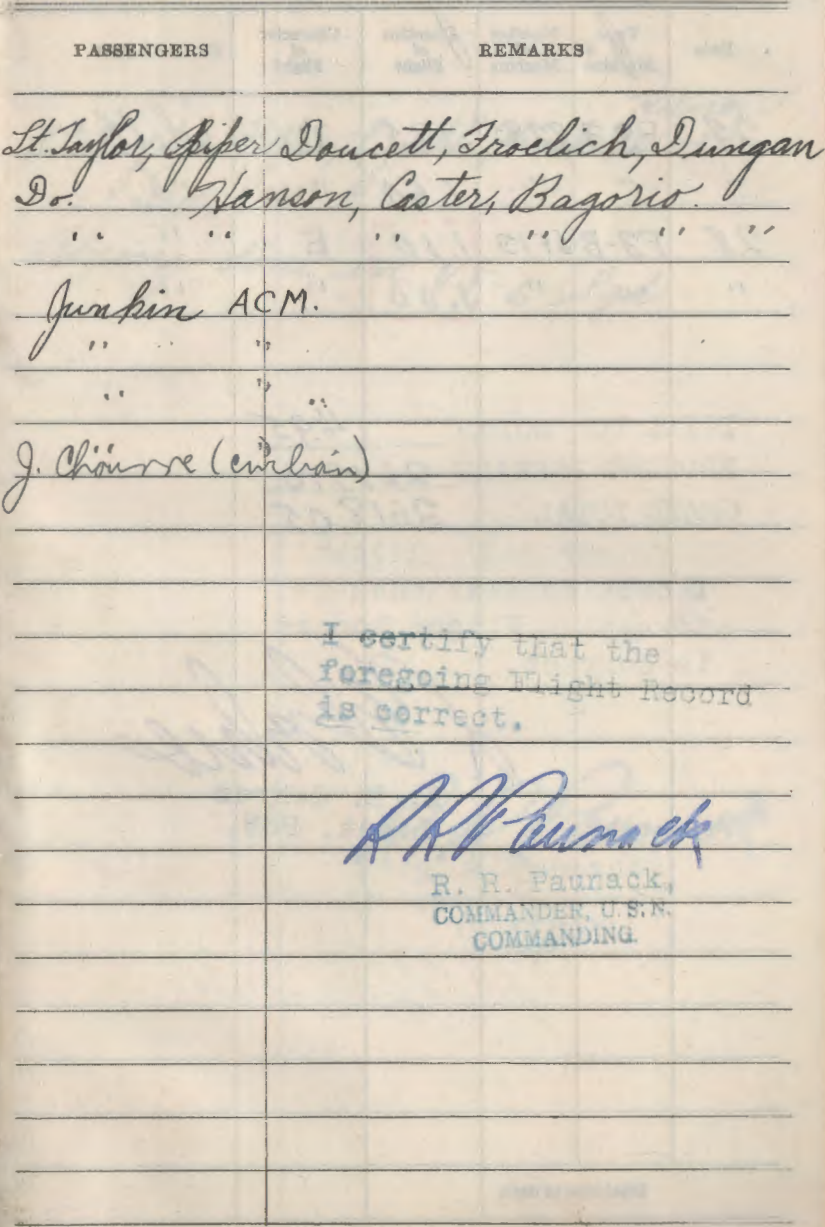 PASSENGERS REMARKS
Lt. Taylor, Piper Doucett, Froelich, Dungan
Do. Hanson, Caster, Bagorio.
" " " " " "
Junkin ACM.
" "
" " "
J.
I certify that the
foregoing Flight Record
is correct.
R R Paunack
R. R. Paunack,
COMMANDER, U.S.N.
COMMANDING.